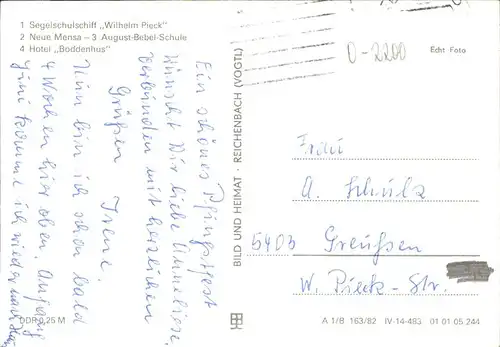 1 Segelschulschiff „Wilhelm Pieck"
2 Neue Mensa – 3 August-Bebel-Schule
4 Hotel „Boddenhus"
0-2200
Echt Foto
Ein schönes Pfingstfest
wünscht Dir liebe Anneliese,
verbunden mit herzlichen
Grüßen Irene.
Nun bin ich schon bald
4 Wochen hier oben. Anfang
Juni komme ich wieder nach
BILD UND HEIMAT · REICHENBACH (VOGTL)
Frau
A. Schulz
5403 Greußen
W. Pieck-Str.
DDR 0,25 M
A 1/B 163/82 IV-14-483 01 01 05 244